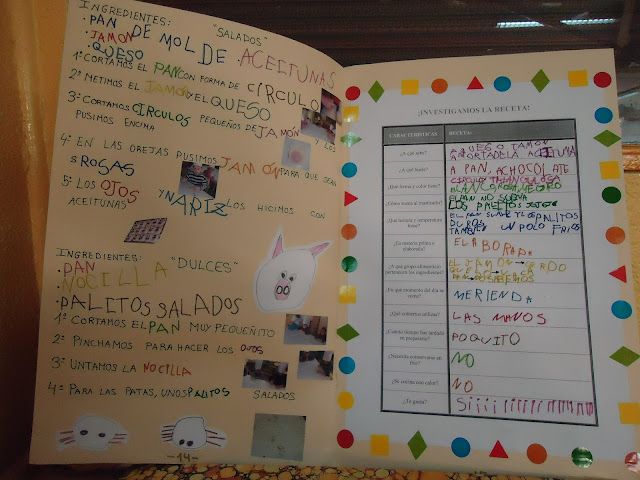 INGREDIENTES: "SALADOS"
· PAN DE MOLDE · ACEITUNAS
· JAMÓN
· QUESO
1º CORTAMOS EL PAN CON FORMA DE CÍRCULO
2º METIMOS EL JAMÓN Y EL QUESO
3º CORTAMOS CÍRCULOS PEQUEÑOS DE JAMÓN Y LOS
PUSIMOS ENCIMA
4º EN LAS OREJAS PUSIMOS JAMÓN PARA QUE SEAN
ROSAS
5º LOS OJOS Y NARIZ LOS HICIMOS CON
ACEITUNAS
INGREDIENTES: "DULCES"
· PAN
· NOCILLA
· PALITOS SALADOS
1º CORTAMOS EL PAN MUY PEQUEÑITO
2º PINCHAMOS PARA HACER LOS OJOS
3º UNTAMOS LA NOCILLA
4º PARA LAS PATAS, UNOS PALITOS SALADOS
-14-
¡INVESTIGAMOS LA RECETA!
CARACTERÍSTICAS RECETA:
¿A qué sabe? A QUESO JAMÓN
MORTADELA ACEITUNA
¿A qué huele? A PAN, A CHOCOLATE
¿Qué forma y color tiene? CÍRCULO TRIÁNGULO ROSA
BLANCO ROSA NEGRO
¿Cómo suena al masticarlo? EL PAN NO SUENA
LOS PALITOS
¿Qué textura y temperatura tiene? EL PAN SUAVE LOS PALITOS
DUROS
TAMBIÉN UN POLO FRÍOS
¿Es materia prima o elaborada? ELABORADA
¿A qué grupo alimentario pertenecen los ingredientes? EL JAMÓN
¿En qué momento del día se come? MERIENDA
¿Qué cubiertos utilizas? LAS MANOS
¿Cuánto tiempo has tardado en prepararlo? POQUITO
¿Necesita conservarse en frío? NO
¿Se cocina con calor? NO
¿Te gusta?